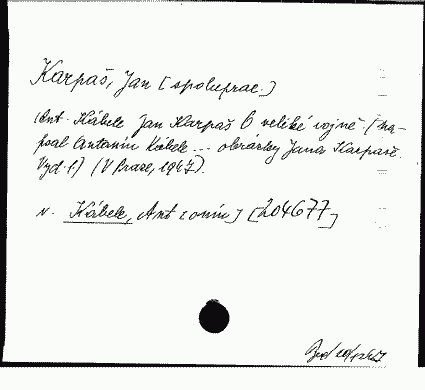 Karpaš, Jan [spoluprac.]
Ant. Kábele Jan Karpaš O veliké vojně (na-
psal Antonín Kábele ... obrázky Jana Karpaše.
Vyd. 1.) (V Praze, 1947).
v. Kábele, Ant[onín] [204677]